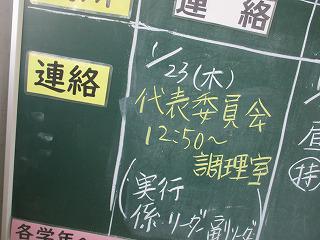 連絡
連絡
1/23(木)
代表委員会
12:50~
調理室
(実行
係.リーダー副リーダー
各学年
昼
持